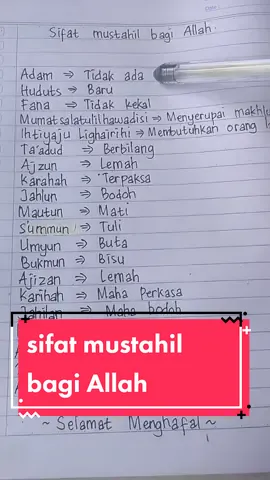 Sifat mustahil bagi Allah.
Adam => Tidak ada
Huduts => Baru
Fana => Tidak kekal
Mumatsalatulilhawadisi => Menyerupai makhlu
Ihtiyaju Lighairihi => Membutuhkan orang
Ta'adud => Berbilang
Ajzun => Lemah
Karahah => Terpaksa
Jahlun => Bodoh
Mautun => Mati
Summun => Tuli
Umyun => Buta
Bukmun => Bisu
Ajizan => Lemah
Karihah => Maha Perkasa
Jahilan => Maha bodoh
sifat mustahil
bagi Allah
~ Selamat Menghafal ~